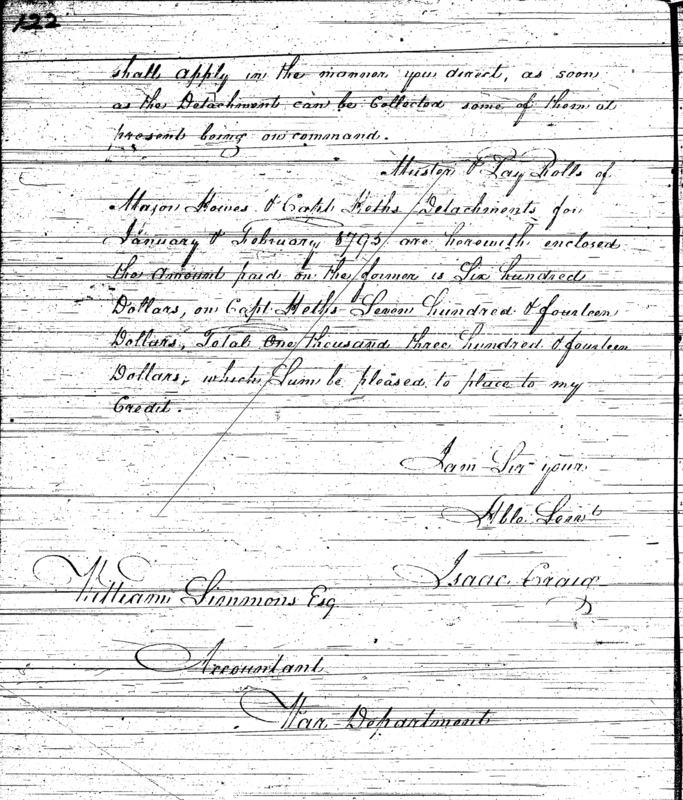 122
shall apply in the manner you direct, as soon
as the Detachment can be Collected some of them at
present being on command.
Muster & Pay Rolls of
Major & Capt Heths Detachments for
January & February 1795 are herewith enclosed
the amount paid on the former is Six hundred
Dollars, on Capt Heths Seven hundred & fourteen
Dollars, Total One thousand three hundred & fourteen
Dollars, which Sum be pleased to place to my
Credit.
I am Sir your
Hble Servt
Isaac Craig
William Simmons Esq
Accountant
War Department